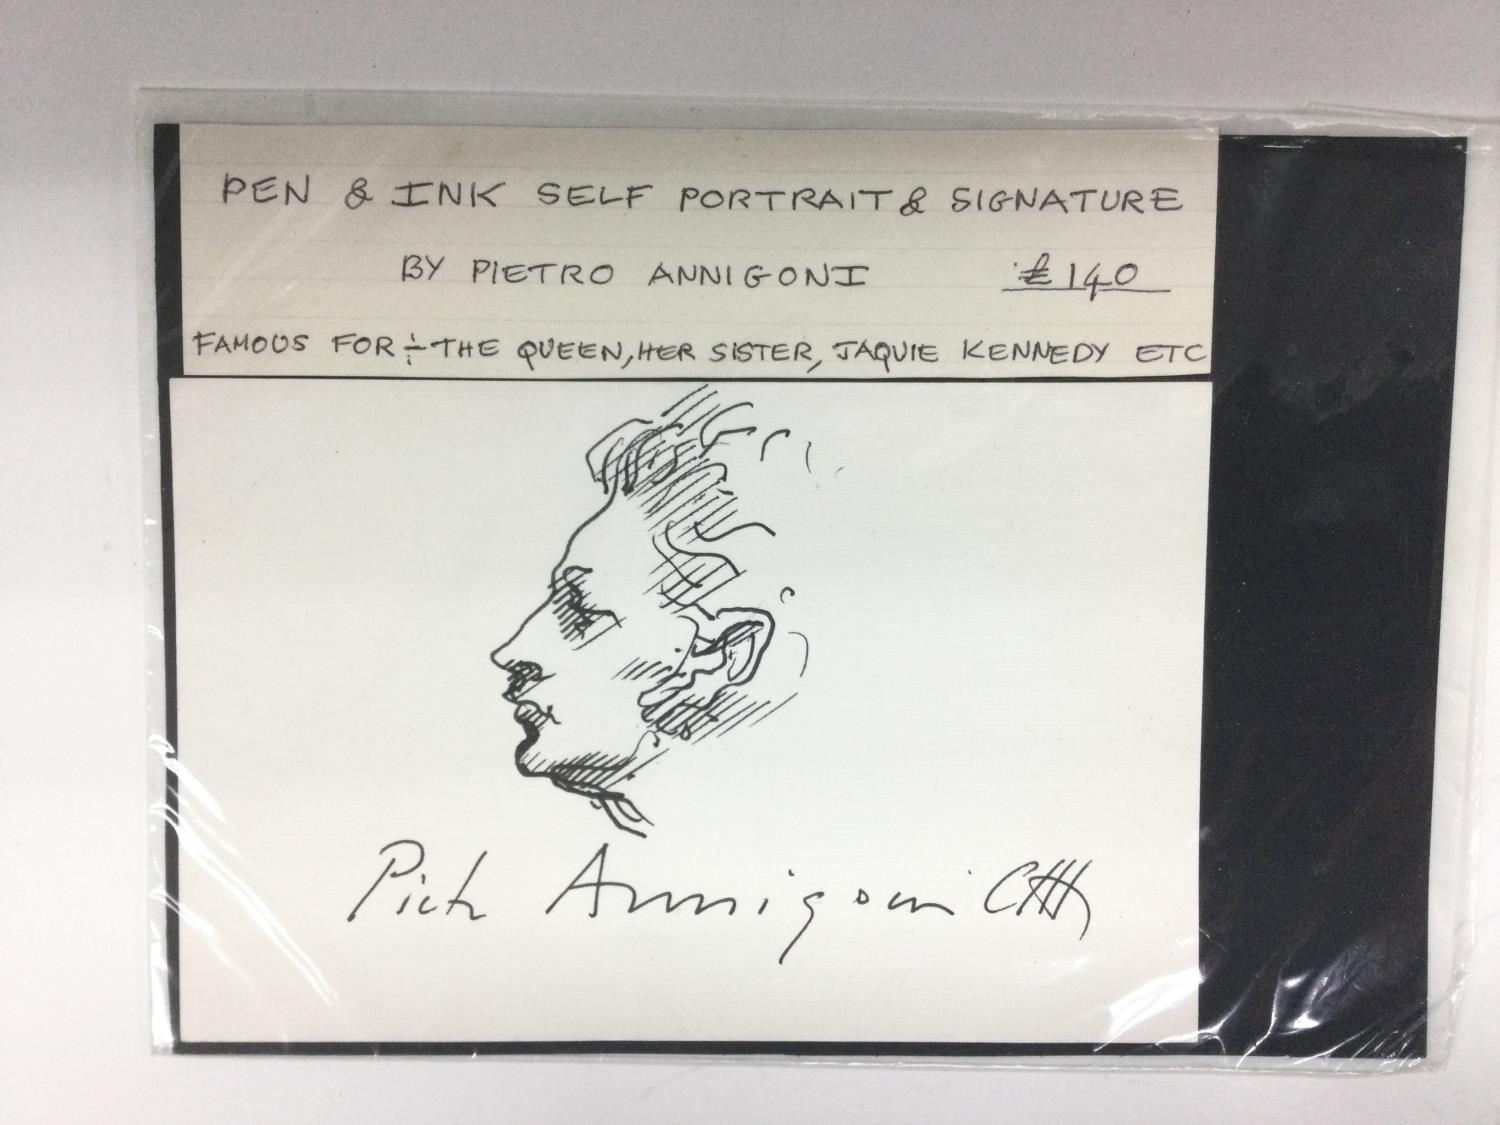 PEN & INK SELF PORTRAIT & SIGNATURE
BY PIETRO ANNIGONI £140
FAMOUS FOR :- THE QUEEN, HER SISTER, JAQUIE KENNEDY ETC
Pietro Annigoni